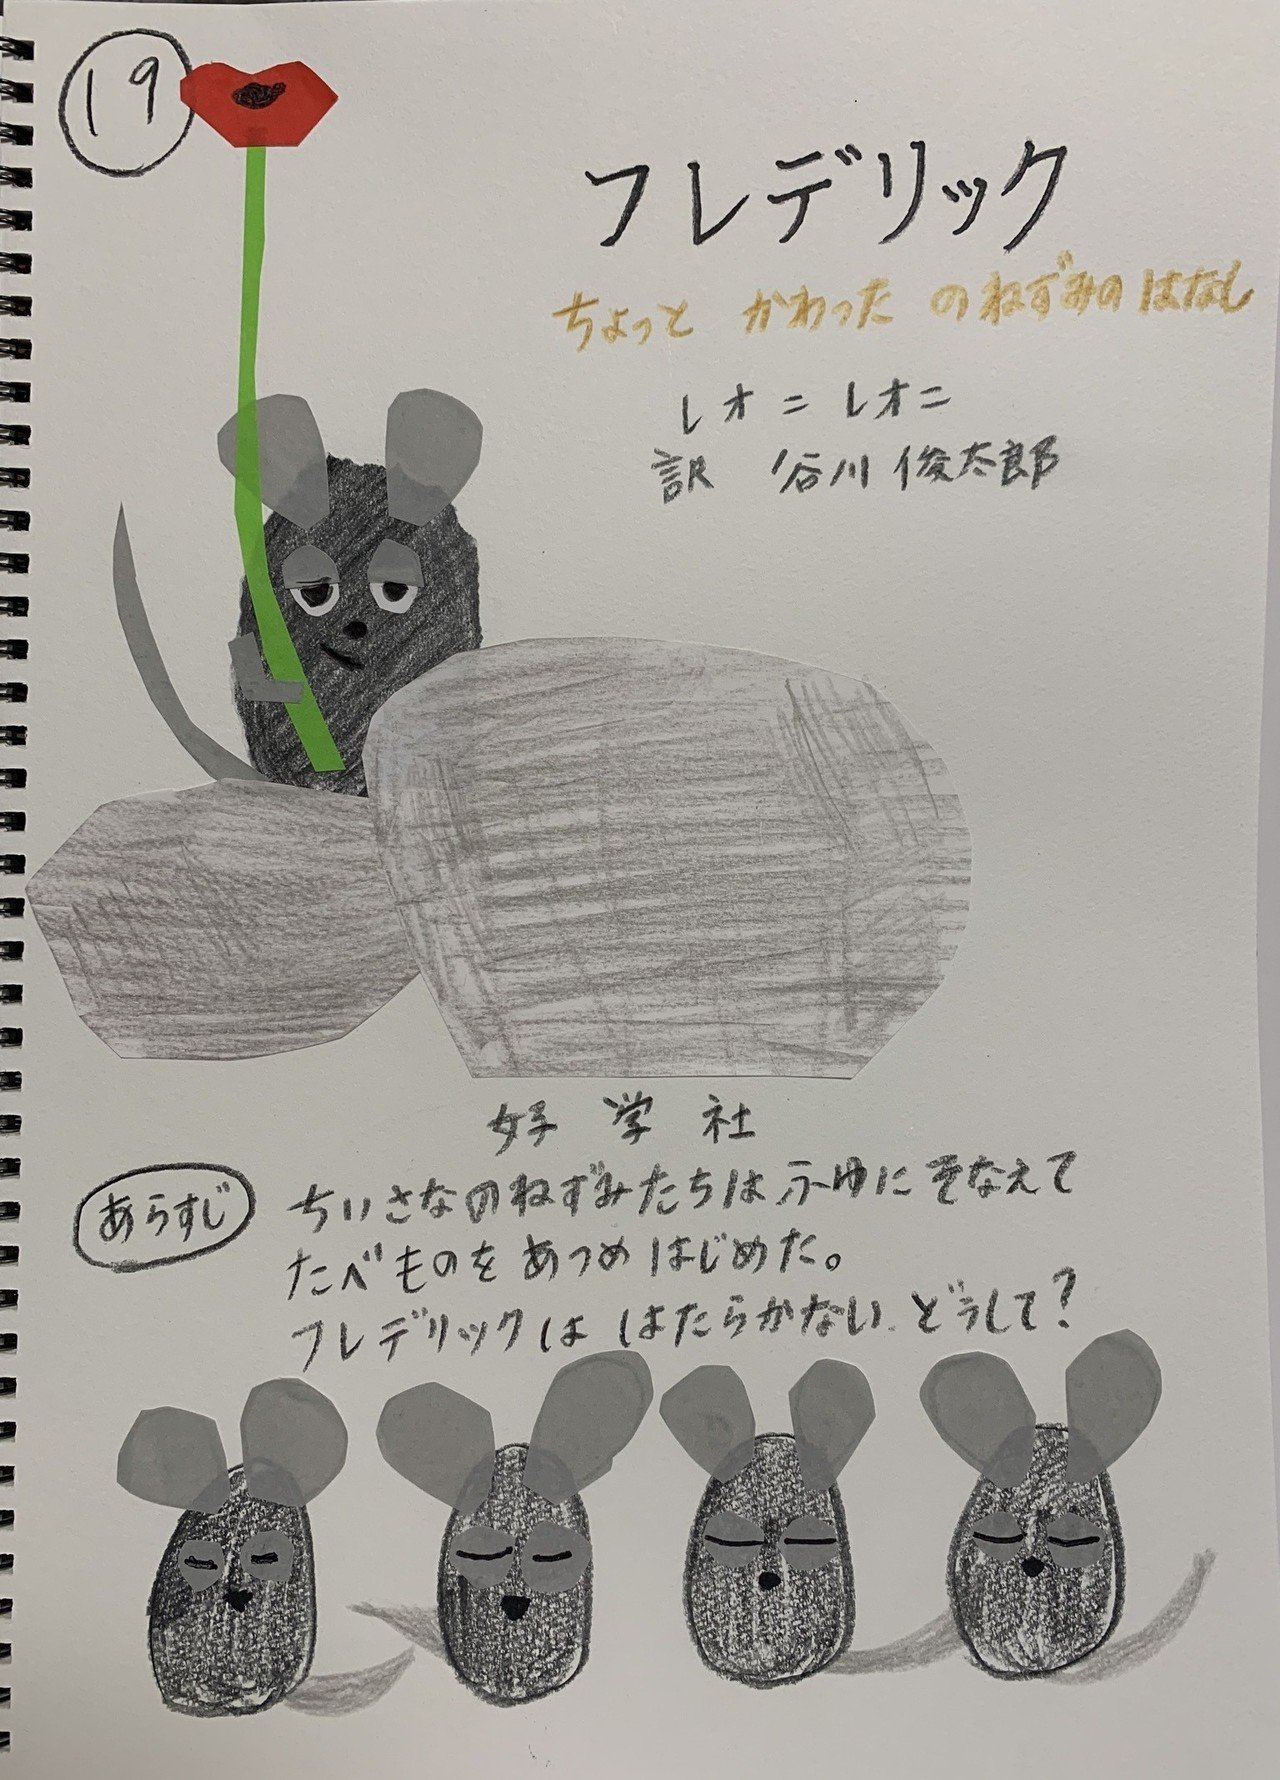 19
フレデリック
ちょっと かわった のねずみのはなし
レオニ レオニ
訳 谷川俊太郎
好学社
あらすじ
ちいさなのねずみたちはふゆにそなえて
たべものをあつめはじめた。
フレデリックははたらかない。どうして?